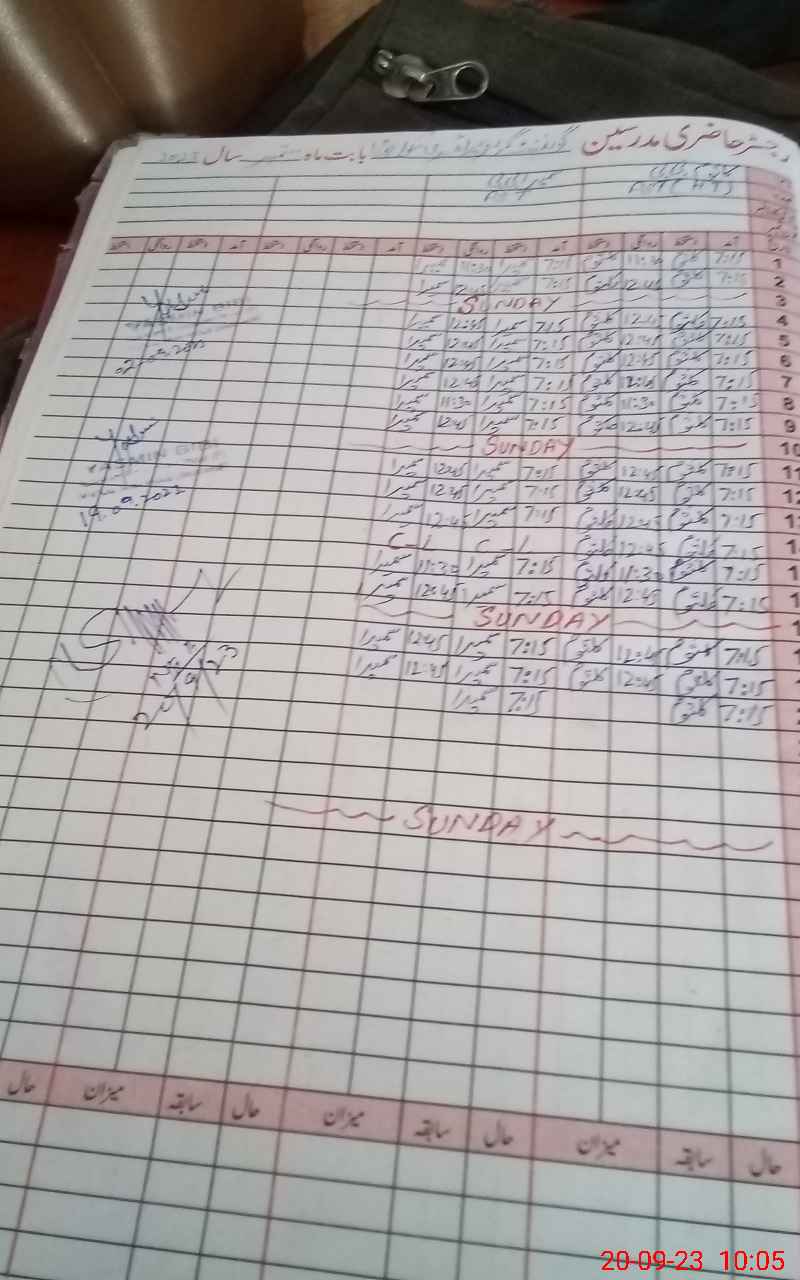 رجسٹر حاضری مدرسین بابت ماہ ستمبر سال 2023
PST (HT) PST
آمد دستخط روانگی دستخط آمد دستخط روانگی دستخط آمد دستخط روانگی دستخط آمد دستخط روانگی دستخط
1 7:15 کلثوم 11:30 کلثوم 7:15 سمیرا 11:30 سمیرا
2 7:15 کلثوم 12:45 کلثوم 7:15 سمیرا 12:45 سمیرا
3 SUNDAY
4 7:15 کلثوم 12:45 کلثوم 7:15 سمیرا 12:45 سمیرا
5 7:15 کلثوم 12:45 کلثوم 7:15 سمیرا 12:45 سمیرا
6 7:15 کلثوم 12:45 کلثوم 7:15 سمیرا 12:45 سمیرا
7 7:15 کلثوم 12:45 کلثوم 7:15 سمیرا 12:45 سمیرا
8 7:15 کلثوم 11:30 کلثوم 7:15 سمیرا 11:30 سمیرا
9 7:15 کلثوم 12:45 کلثوم 7:15 سمیرا 12:45 سمیرا
10 SUNDAY
11 7:15 کلثوم 12:45 کلثوم 7:15 سمیرا 12:45 سمیرا
12 7:15 کلثوم 12:45 کلثوم 7:15 سمیرا 12:45 سمیرا
7:15 کلثوم 12:45 کلثوم 7:15 سمیرا 12:45 سمیرا
7:15 کلثوم 12:45 کلثوم C_L C_L
7:15 کلثوم 11:30 کلثوم 7:15 سمیرا 11:30 سمیرا
7:15 کلثوم 12:45 کلثوم 7:15 سمیرا 12:45 سمیرا
SUNDAY
7:15 کلثوم 12:45 کلثوم 7:15 سمیرا 12:45 سمیرا
7:15 کلثوم 12:45 کلثوم 7:15 سمیرا 12:45 سمیرا
7:15 کلثوم 7:15 سمیرا
SUNDAY
حال سابقہ میزان حال سابقہ میزان حال سابقہ میزان حال
20-09-23 10:05